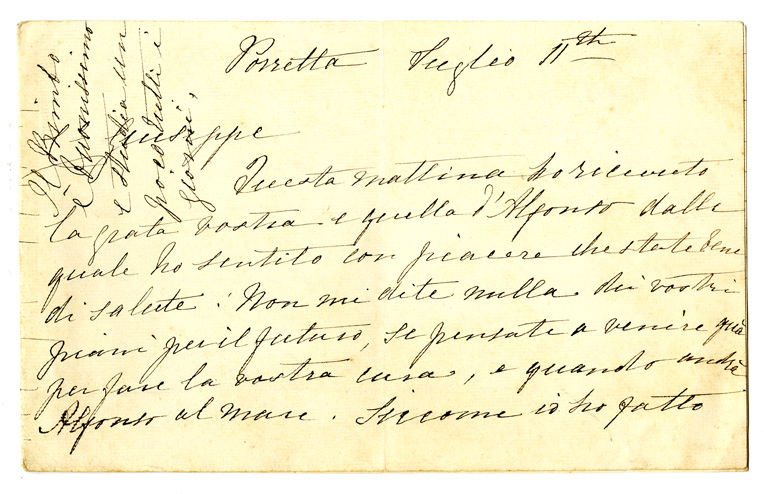 Porretta Luglio 11th
Giuseppe
Questa mattina ho ricevuto
la grata vostra e quella d'Alfonso dalle
quale ho sentito con piacere che state bene
di salute. Non mi dite nulla dei vostri
piani per il futuro, se pensate a venire quà
per fare la vostra cura, e quando andrà
Alfonso al mare. Siccome io ho fatto
Il Bimbo
è buonissimo
e studia un
poco tutti i
giorni,